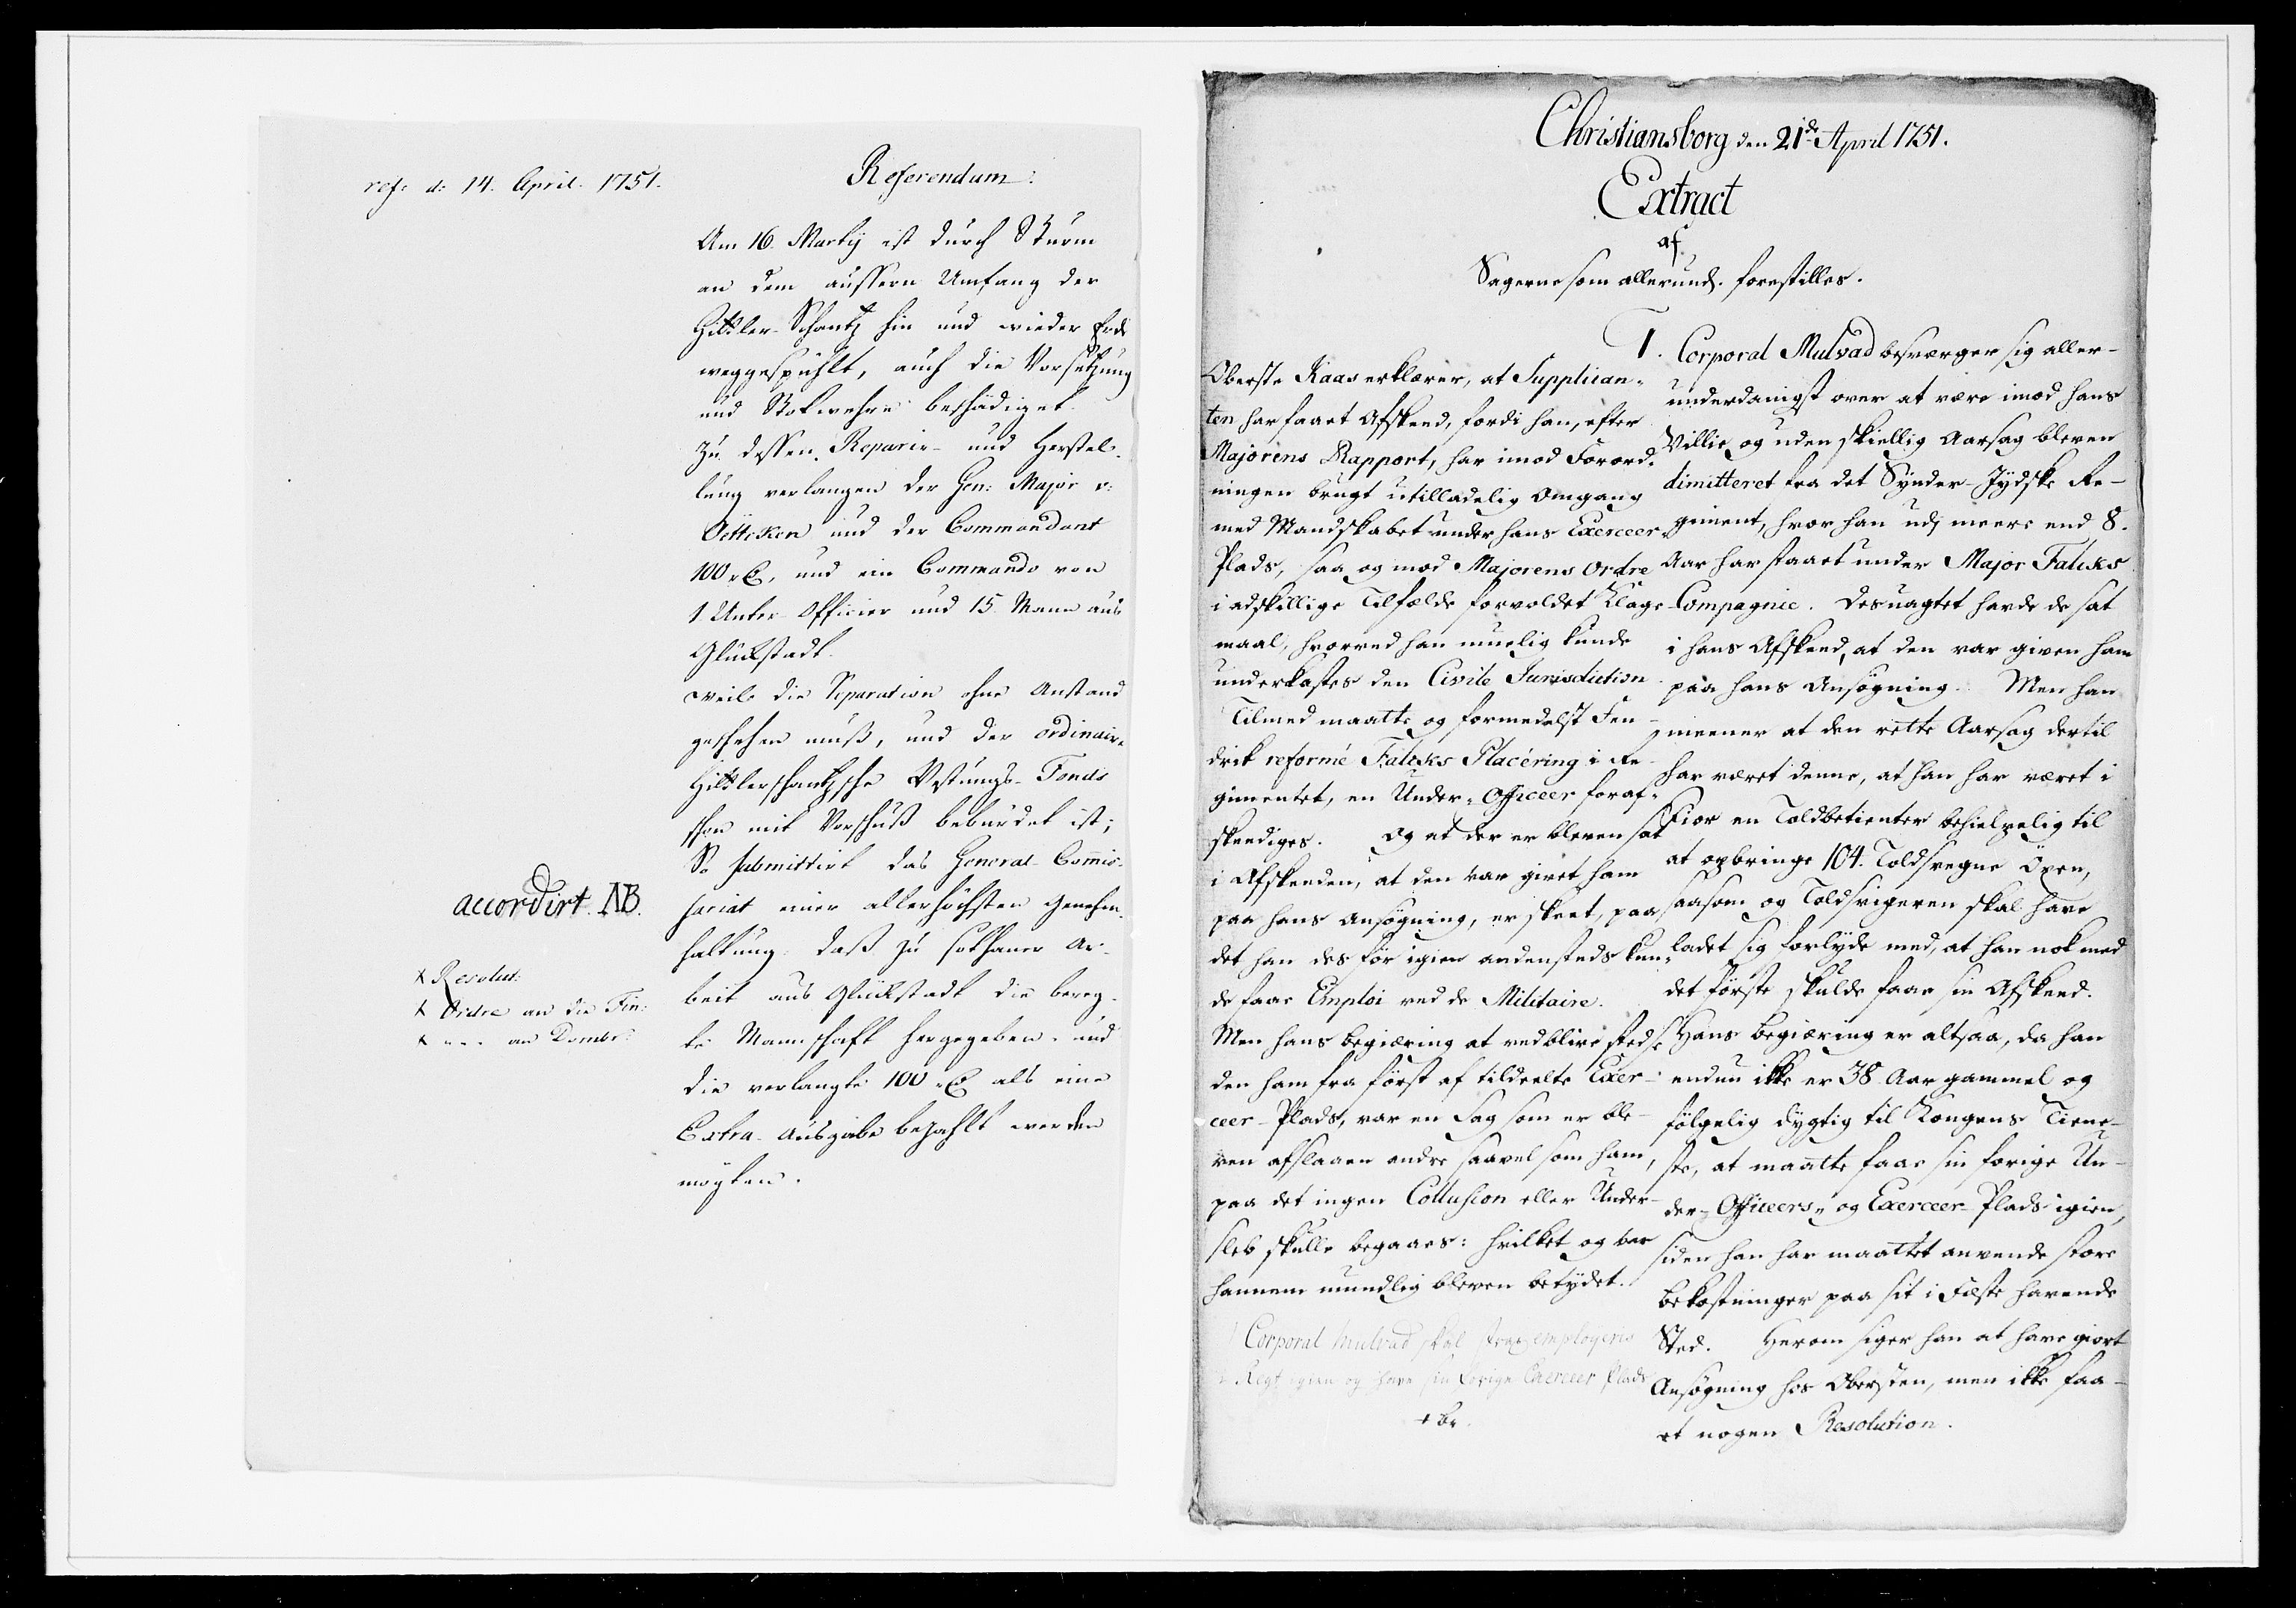 ref: d: 14. April. 1751.
Referendum:
Am 16. Martÿ ist durch Sturm
an dem äussern Umfang der
Hittler-Schantz hin und wieder Erde
weggespühlt, auch die Vorsetzung
und Stakwehre beschädiget.
Zu dessen Reparir- und Herstel-
lung verlangen der Gen: Major v:
Öttcken und der Commandant
100 r, und ein Commando von
1. Unter-Officier und 15. Mann aus
Glückstadt.
weile die Reparation ohne Anstand
geschehen muß, und der ordinaire
Hittlerschantzsche Vestungs-Fonds
schon mit Vorschuß bebürdet ist;
So submittirt das General-Com̃is-
sariat einer allerhöchsten Genehm-
haltung: daß zu sothaner Ar-
beit aus Glückstadt die bereg-
te Mannschaft hergegeben, und
die verlangte 100 r als eine
Extra-Ausgabe bezahlt werden
mögten.
accordirt. NB.
x Resolut:
x Ordre an die Fin:
x - - - an Dombr:
Christiansborg den 21de April 1751.
Extract
af
Sagerne som allerund. forestilles.
1.
Corporal Mulvad besværger sig aller-
underdanigst over at være imod hans
Villie og uden skiellig Aarsag bleven
dimitteret fra det Synder-Jydske Re-
giment, hvor han udj meere end 8.
Aar har staaet under Major Faliks
Compagnie. Desuagtet havde de sat
i hans Afskeed, at den var given ham
paa hans Ansøgning. Men han
meener at den rette Aarsag dertil
har været denne, at han har været i
Fior en Toldbetienter behielpelig til
at opbringe 104. Toldsvegne Öxen,
saasom og Toldsvigeren skal have
ladet sig forlyde med, at han nok med
det første skulde faae sin Afskeed.
Hans begiæring er altsaa, da han
endnu ikke er 38 Aar gammel og
følgelig dygtig til Kongens Tiene-
ste, at maatte faae sin forige Un-
der-Officeers- og Exerceer-Plads igien,
siden han har maattet anvende store
bekostninger paa sit i Fæste havende
Sted. Herom siger han at have giort
Ansøgning hos Obersten, men ikke faa-
et nogen Resolution.
Oberste Kaas erklærer, at Supplican-
ten har faaet Afskeed, fordi han, efter
Majorens Rapport, har imod Forord-
ningen brugt utilladelig Omgang
med Mandskabet under hans Exerceer-
Plads, saa og mod Majorens Ordre
i adskillige Tilfælde forvoldet Klage-
maal, hvorved han muelig kunde
underkastes den Civile Jurisdiction.
Tilmed maatte og formedelst Fen-
drik reformé Faliks Placéring i Re-
gimentet, en Under-Officeer foraf-
skeediges. Og at der er bleven sat
i Afskeeden, at den var givet ham
paa hans Ansøgning, er skeet, paa
det han des før igien andensteds kun-
de faae Emploi ved de Militaire.
Men hans begiæring at vedblive stedse
den ham fra først af tildeelte Exer-
ceer-Plads, var en Sag som er ble-
ven afslaaen andre saavel som ham,
paa det ingen Collusion eller Under-
sleb skulle begaaes: hvilket og var
hannem mundlig bleven betydet.
Corporal Mulvad skal strax employeris
v. Regt igien og have sin forige Exerceer Plads
+ br.